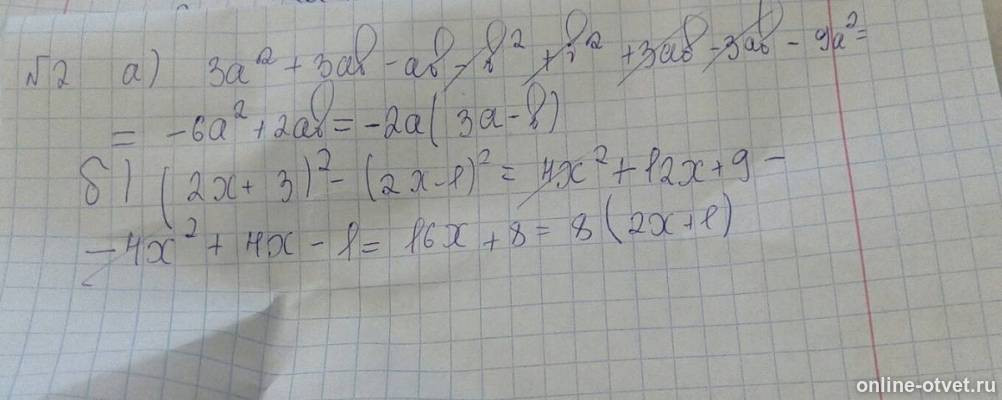 №2 а) 3a² + 3ab - ab - b² + b² + 3ab - 3ab - 9a² =
= -6a² + 2ab = -2a(3a - b)
б) (2x + 3)² - (2x - 1)² = 4x² + 12x + 9 -
- 4x² + 4x - 1 = 16x + 8 = 8(2x + 1)
online-otvet.ru